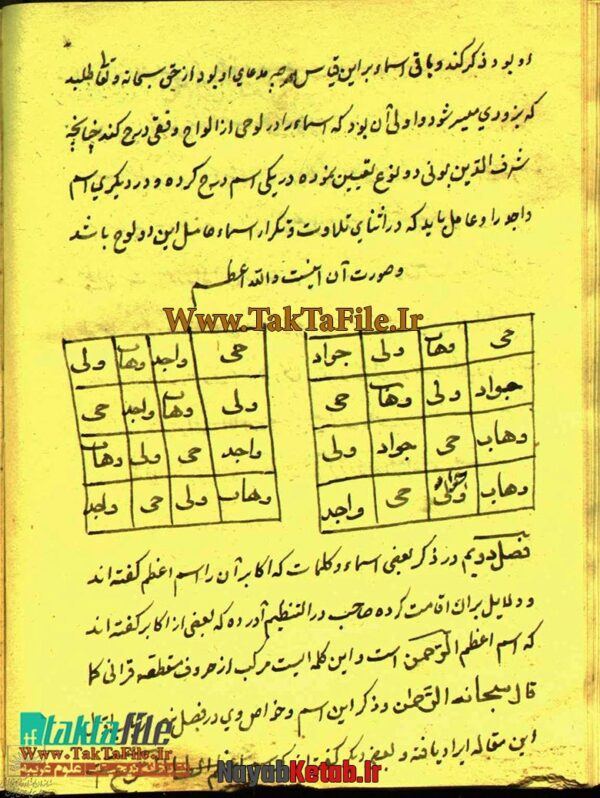 او بود ذکر کند و باقی اسماء بر این قیاس هر چه مدعای او بود از حق سبحانه و تعالی طلبد
که بزودی میسر شود و اولی آن بود که اسماء را در لوحی از الواح وفقی درج کند چنانچه
شرف الدین بونی دو نوع تعیین نموده در یکی اسم درج کرده و در دیگری اسم
واجد را و عامل باید که در اثنای تلاوت و تکرار اسماء حامل این دو لوح باشد
و صورت آن اینست والله اعظم
www.TakTaFile.Ir
حی وهاب ولی جواد
جواد ولی وهاب حی
وهاب حی جواد ولی
وهاب ولی جواد حی واجد
حی واجد وهاب ولی
ولی وهاب واجد حی
واجد حی ولی وهاب
وهاب ولی حی واجد
فصل دویم در ذکر بعضی اسماء و کلمات که اکابر آن را اسم اعظم گفته اند
و دلایل بران اقامت کرده صاحب در التنظیم آورده که بعضی از اکابر گفته اند
که اسم اعظم الرحمن است و این کلمه ایست مرکب از حروف مقطعه قرانی کما
قال سبحانه الرحمن و ذکر این اسم و خواص وی در فصل
این مقاله ایراد یافته و بعضی دیگر گفته اند که
taktafile
www.TakTaFile.Ir
NayabKetab.Ir